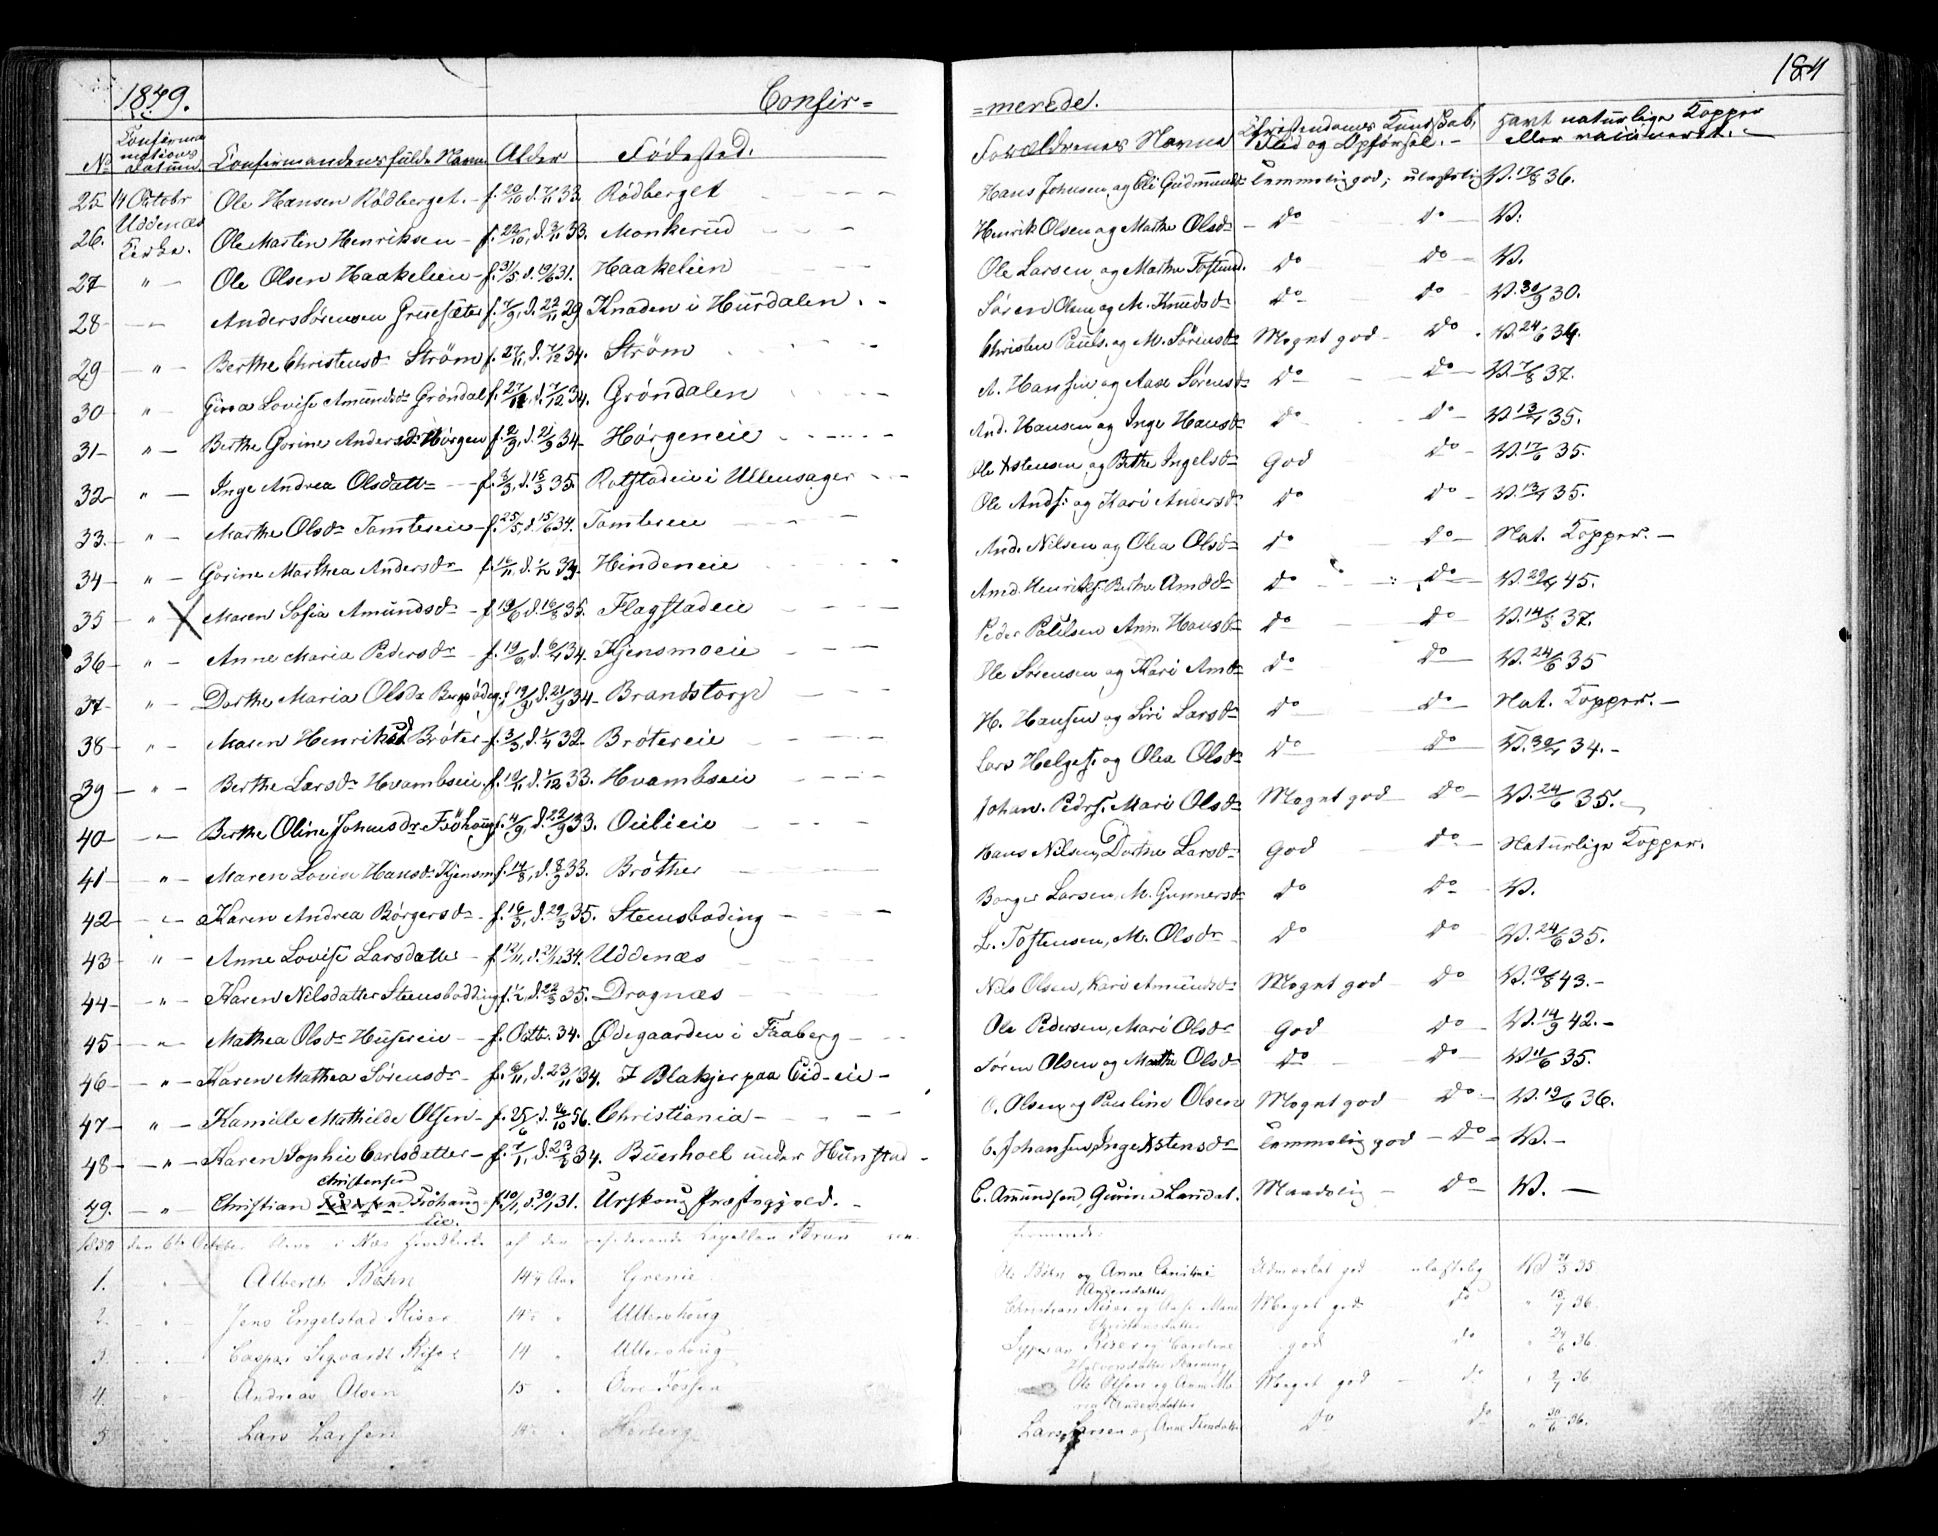 1849. Confir= =merede. 184
No Confirmationens Datum. Confirmandens fulde Navn Alder Fødested. Forældrenes Navne Christendoms Kundskab, Flid og Opførsel. Havt naturlige Kopper eller vaccineret.
25 14 Octobr Ole Hansen Rödberget. f. 20/10 d. 7/11 33. Rödberget Hans Johnsen og Eli Gudmunds= Temmelig god; ulastelig V. 17/8 36.
26. Uddenæs Kirke. Ole Martin Henriksen f. 22/10, d. 3/11 33. Monkerud Henrik Olsen og Marthe Olsd= do do V:
27 " Ole Olsen Haakelien f. 31/5 d. 19/6 31. Haakelien Ole Larsen og Marthe Tostend. do do V.
28 Anders Sörensen Gruesæter f. 7/9, d. 22/11 29 Knaden i Hurdalen. Sören Olsen og M. Knudsdr do do V. 30/9 30.
29 " Berthe Christensdr Ström f. 27/11, d. 7/12 34. Ström Christen Pauls. og M. Sörensdr Meget god do V. 24/6 34.
30 " Gina Lovise Amundsdr Gröndal f. 27/11, d. 7/12 34. Gröndalen A. Hansen og Aase Sörensdr do do V. 7/8 37.
31 " Berthe Gorine Andersdr Hörgen f. 2/9, d. 21/9 34 Hörgeneie And. Hansen og Inge Hansdr do do V. 13/7 35.
32 " Inge Andrea Olsdatt= f. 3/3, d. 15/3 35. Rotstadeie i Ullensager Ole Xstensen og Bethe Ingelsdr God do V. 17/6 35.
33. " Marthe Olsdr Tamtereie f. 25/5, d. 15/6 34. Tamtereie Ole Ands: og Kari Andersdr do do V. 13/7 35.
34 " Gorine Marthea Andersdr f. 16/11, d. 1/12 33. Hindeneie And. Nilsen og Olea Olsdr do do Nat. Kopper.
35 " X Maren Sofia Amundsdr f. 19/6 d. 16/8 35. Flagstadeie Amd. Henriks. Berthe Amddr do do V. 29/7 45.
36 " Anne Maria Pedersdr f. 19/2, d. 6/4 34. Kjensmoeie Peder Paulsen Ann. Hansdr do do V. 14/8 37.
37 " Dorthe Maria Olsdr f. 19/9, d. 21/9 34 Brandstorp Ole Sörensen og Kari Amdr do do V. 24/6 35
38 " Maren Henriksd. Bröter f. 3/3, d. 1/4 32 Brötereie H. Hansen og Siri Larsdr do do Nat. Kopper.
39 " Berthe Larsdr Hvambseie f. 19/11, d. 1/12 33. Hvambseie Lars Helges. og Olea Olsdr do do V. 30/7 34.
40 Berthe Oline Johnsdr Fröhoug f. 4/9, d. 22/9 33. Oulieie Johan. Peders. Mari Olsdr Meget god do V. 24/6 35.
41 " Maren Lovise Hansdr Kjensm f. 14/8, d. 8/9 33. Bröther Hans Nilsen, Dorthe Larsdr God do Naturlige Kopper.
42 Karen Andrea Börgersdr f. 16/3, d. 29/3 35. Steensbading Borger Larsen, M. Gunnersdr do do V.
43 " Anne Lovise Larsdatter f. 12/11, d. 21/12 34. Uddenæs L. Tostensen, M. Olsdr do do V. 24/6 35.
44 " Karen Nilsdatter Steensbodding f. 1/2, d. 22/3 35. Dragnæs Nils Olsen, Kari Amundsdr Meget god do V. 19/8 43.
45 Mathea Olsdr Husereie f. Octb. 34. Ödegaarden i Faaberg Ole Pedersen, Mari Olsdr God do V. 14/9 42.
46 " Karen Mathea Sörensdr f. 8/11, d. 23/11 34. I Blakjer paa Eid-eie Sören Olsen og Marthe Olsdr do do V. 11/6 35.
47 " Kamille Mathilde Olsen f. 25/6 d. 26/10 36. Christiania O. Olsen og Pauline Olsen Meget god do V. 19/6 36.
48 " Karen Sophie Carlsdatter f. 7/1, d. 23/3 34. Buerhoel under Hunstad C. Johansen, Inge Xstensdr Temmelig god do V.
Christensen
49. " Christian Fröhaug f. 10/1, d. 30/1 31. Urskoug Præstegjeld. C. Amundsen, Gurine Larsdat. Maadelig do V.
Eie.
1850 den 6te October af den residerende Capellan Brun
1. Alberth Böhn 14 1/2 Aar Grenie Ole Böhn og Anne Cartine Udmærket god ulastelig V. 21/5 35
Aagersdatter
2. Jens Engelstad Riser 14 1/2 Ullershoug Christian Riser og Meget god do 18/7 36.
Christensdatter
3. Caspar Sigvardt Riser 14 Ullershoug Riser og Caroline god do 24/6 36.
Halvorsdatter
4. Andreas Olsen 15 Övre Fossen Ole Olsen og Anne Ma Meget god do 2/7 36.
ria Andersdatter
5 Lars Larsen 14 1/2 Herberg Lars Larsen og Anne do do 30/6 36.